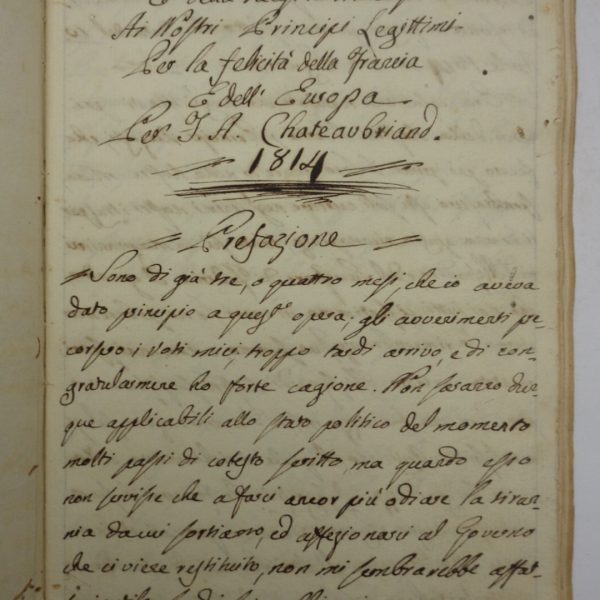 E della
Ai Nostri Principi Legittimi
Per la felicità della Francia
E dell' Europa
Per J. A. Chateaubriand.
1814
Prefazione
Sono di già tre, o quattro mesi, che io aveva
dato principio a quest' opera; gli avvenimenti pre-
corsero i voti miei, troppo tardi arrivo, e di con-
gratularmene ho forte cagione. Non saranno dun-
que applicabili allo stato politico del momento
molti passi di cotesto scritto, ma quando esso
non servisse che a farci ancor più odiare la tiran-
nia da cui sortiamo, ed affezionarci al Governo
che ci viene restituito, non mi sembrarebbe affat-